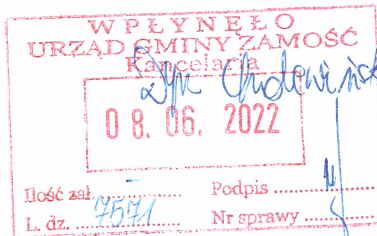 WPŁYNĘŁO
URZĄD GMINY ZAMOŚĆ
Kancelaria
08. 06. 2022
Ilość zał. ............... Podpis ...............
L. dz. 7571 Nr sprawy ...............